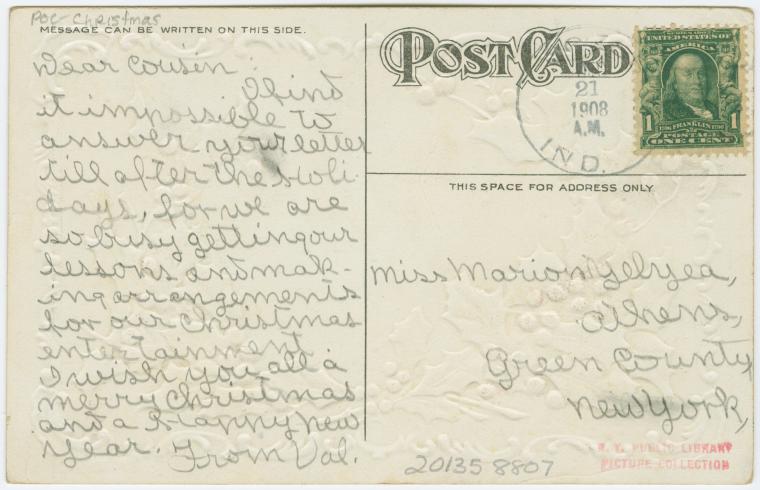 POC Christmas
MESSAGE CAN BE WRITTEN ON THIS SIDE.
Dear Cousin
I find
it impossible to
answer your letter
till after the Holi-
days, for we are
so busy getting our
lessons and mak-
ing arrangements
for our Christmas
entertainment
I wish you all a
merry Christmas
and a Happy New
Year. From Val.
POST CARD
21
1908
A.M.
IND.
SERIES 1902
UNITED STATES OF
AMERICA
1 1706 FRANKLIN 1790 1
POSTAGE
ONE CENT
THIS SPACE FOR ADDRESS ONLY
Miss Marion
Athens,
Green County
New York,
N. Y. PUBLIC LIBRARY
PICTURE COLLECTION
20135 8807